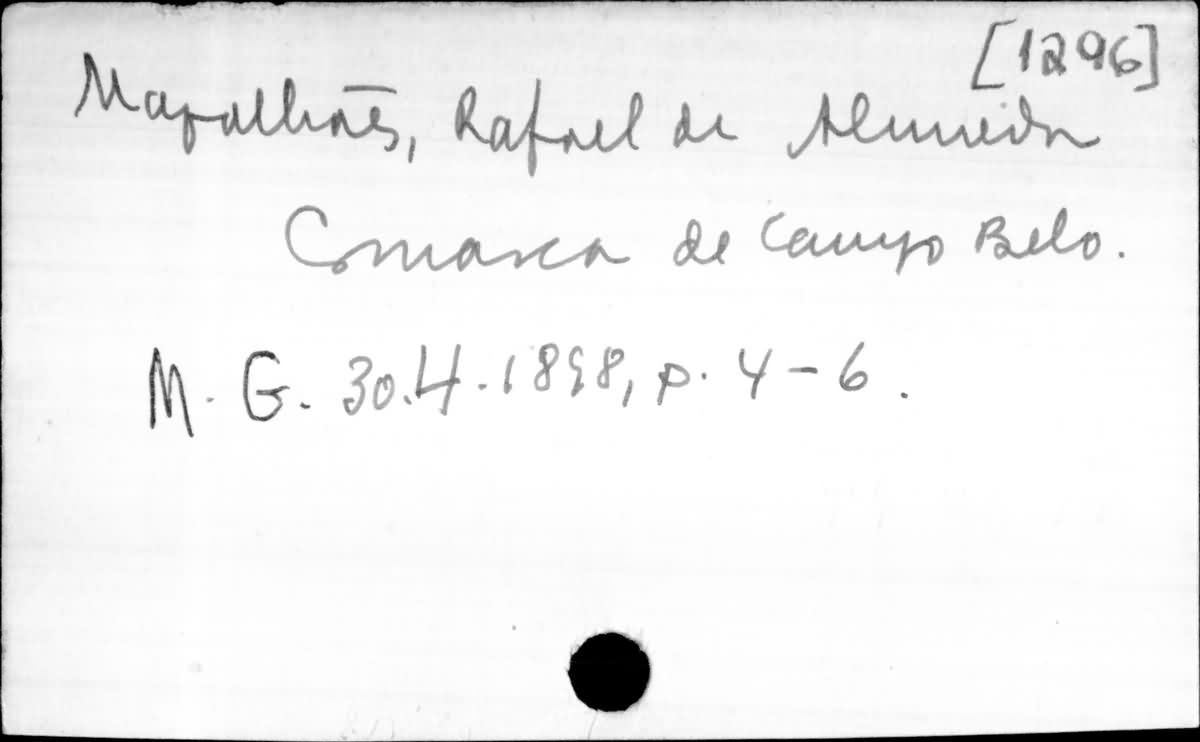 [1296]
Magalhães, Rafael de Almeida
Comarca de Campo Belo.
M. G. 30.4.1898, p. 4-6.